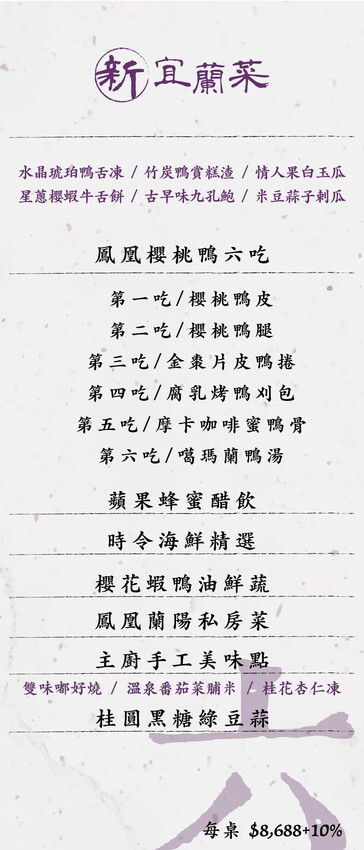 新宜蘭菜
水晶琥珀鴨舌凍 / 竹炭鴨賞糕渣 / 情人果白玉瓜
星蔥櫻蝦牛舌餅 / 古早味九孔鮑 / 米豆蒜子刺瓜
鳳凰櫻桃鴨六吃
第一吃/櫻桃鴨皮
第二吃/櫻桃鴨腿
第三吃/金棗片皮鴨捲
第四吃/腐乳烤鴨刈包
第五吃/摩卡咖啡蜜鴨骨
第六吃/噶瑪蘭鴨湯
蘋果蜂蜜醋飲
時令海鮮精選
櫻花蝦鴨油鮮蔬
鳳凰蘭陽私房菜
主廚手工美味點
雙味嘟好燒 / 溫泉番茄菜脯米 / 桂花杏仁凍
桂圓黑糖綠豆蒜
每桌 $8,688+10%